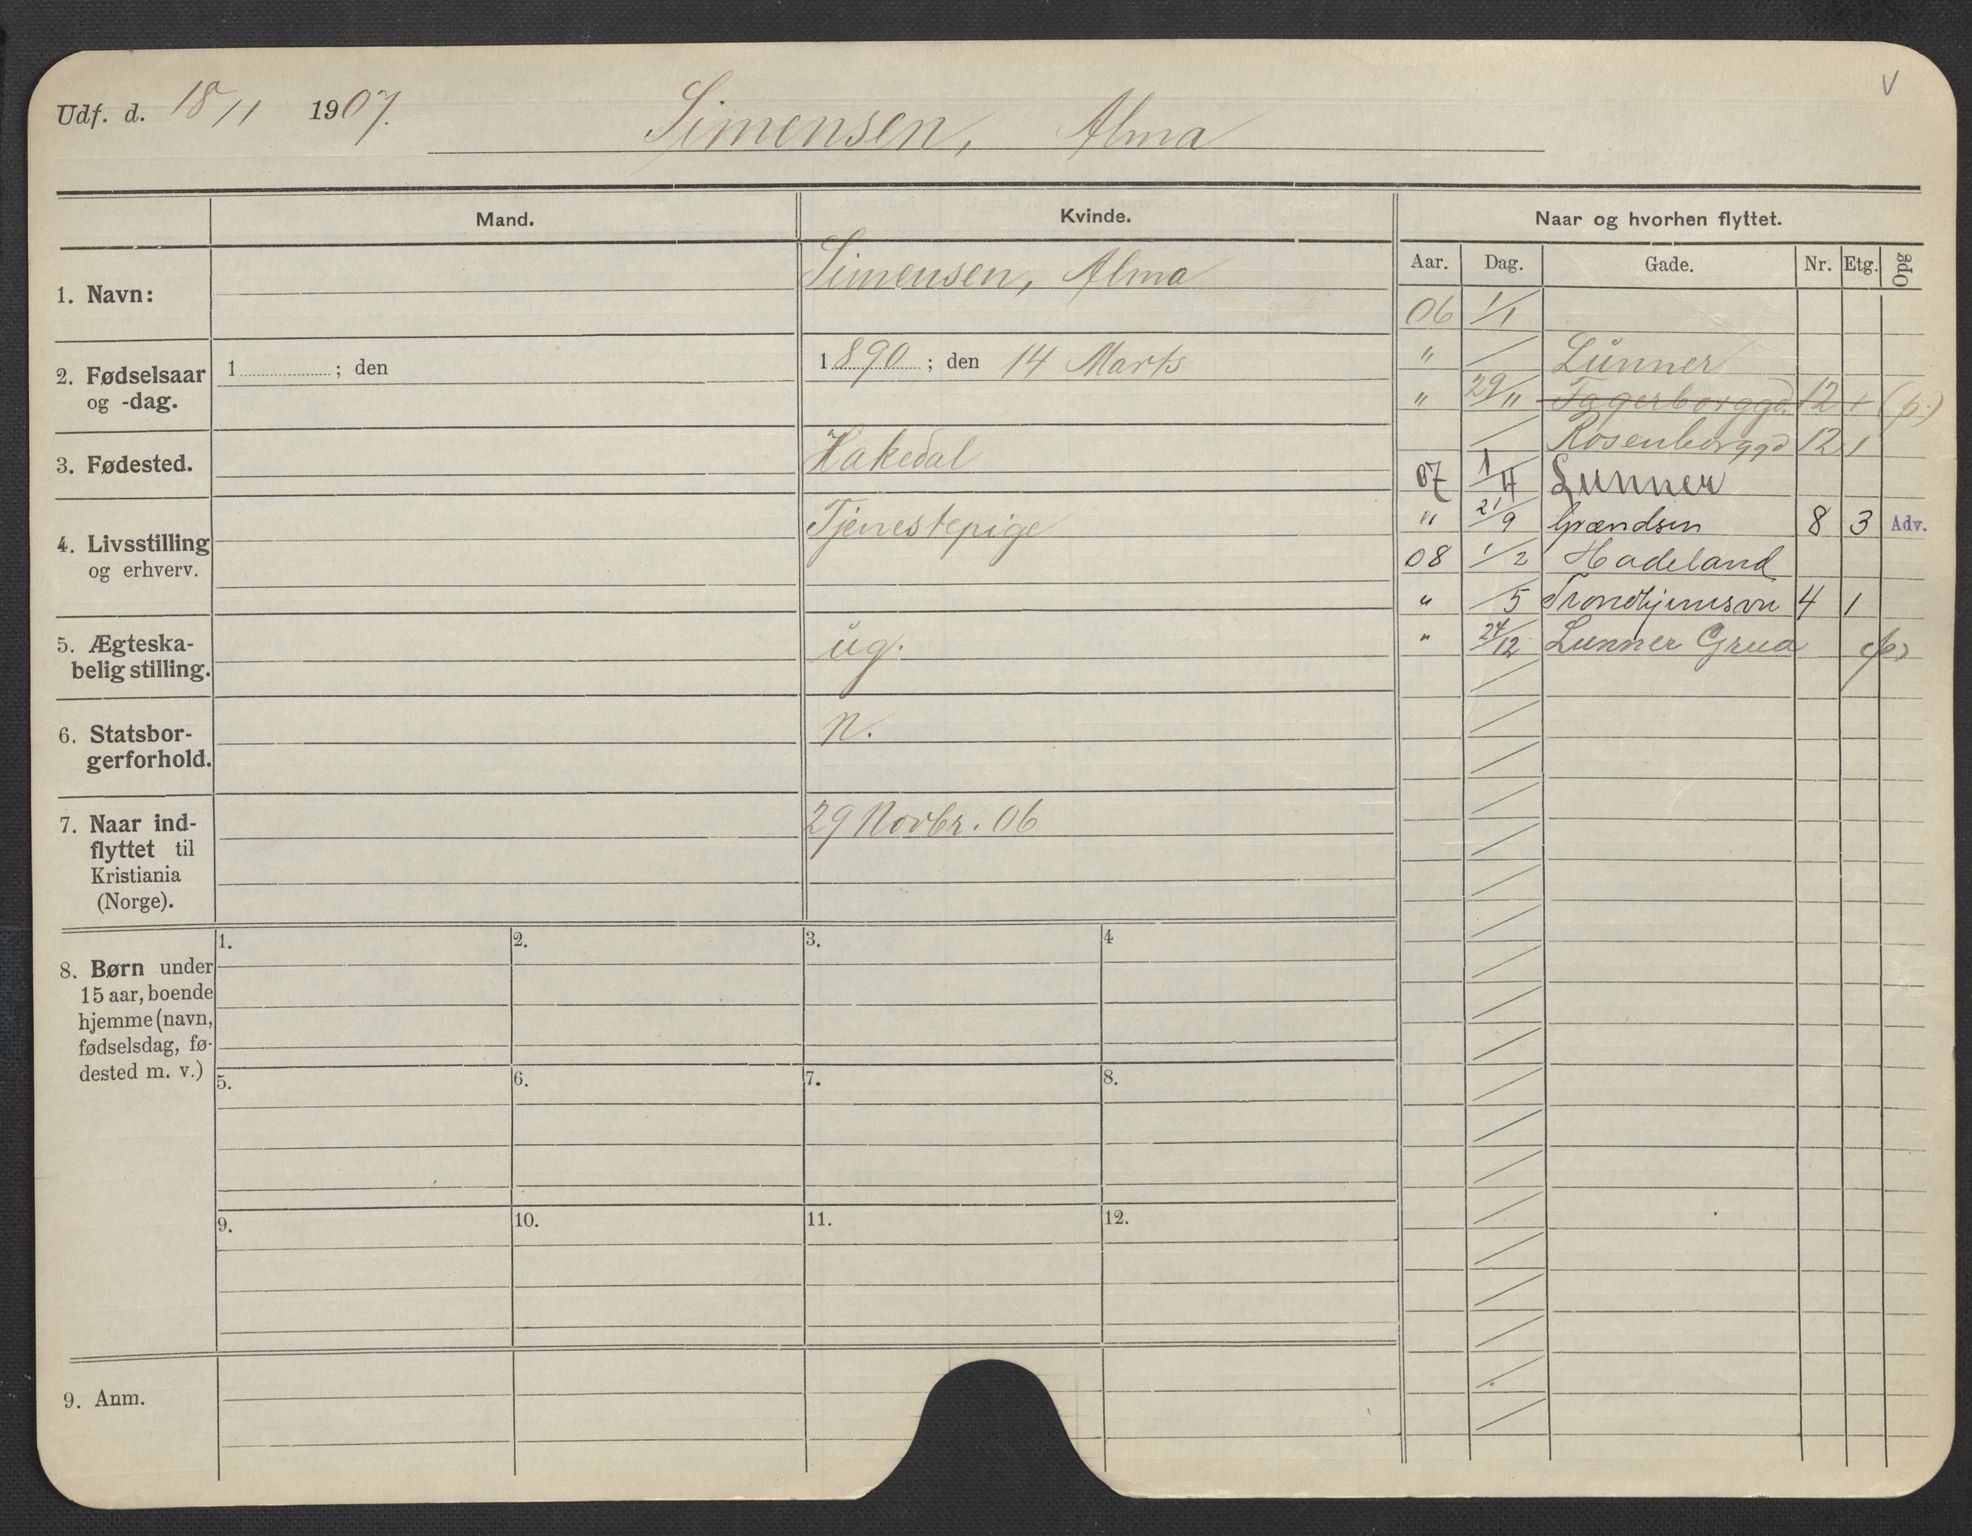 Udf. d. 18/1 1907.
Simensen, Alma
V
Mand.
Kvinde.
Naar og hvorhen flyttet.
Aar. Dag. Gade. Nr. Etg. Opg
1. Navn:
Simensen, Alma
2. Fødselsaar
og -dag.
1 ; den
1890 ; den 14 Marts
3. Fødested.
Hakedal
4. Livsstilling
og erhverv.
Tjenestepige
5. Ægteska-
belig stilling.
ug.
6. Statsbor-
gerforhold.
n.
7. Naar ind-
flyttet til
Kristiania
(Norge).
29 Novbr. 06
8. Børn under
15 aar, boende
hjemme (navn,
fødselsdag, fø-
dested m. v.)
1. 2. 3. 4
5. 6. 7. 8.
9. 10. 11. 12.
9. Anm.
06 1/1
" / Lunner
" 29/11 Fagerborggd. 12 1 (p.)
/ Rosenborggd 12 1
07 1/4 Lunner
" 21/9 Grændsen 8 3 Adv.
08 1/2 Hadeland
" /5 Trondhjemsvn 4 1
" 24/12 Lunner Grua (p)